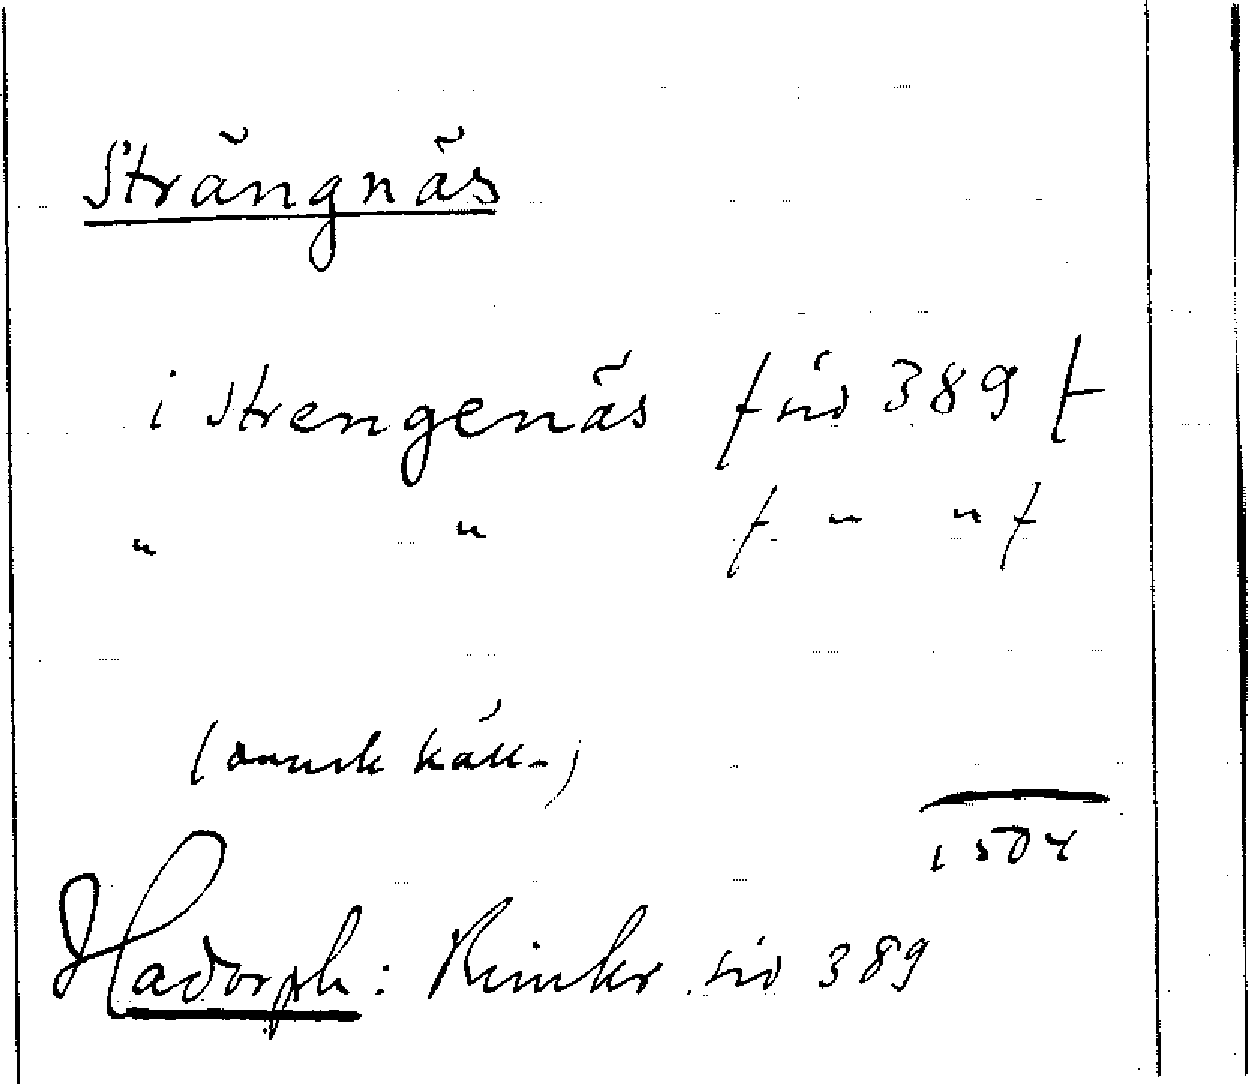 Strängnäs
i Strengenäs f sid 389 f
" " f " " f
(dansk käll-)
1504
Hadorph: Rimkr sid 389